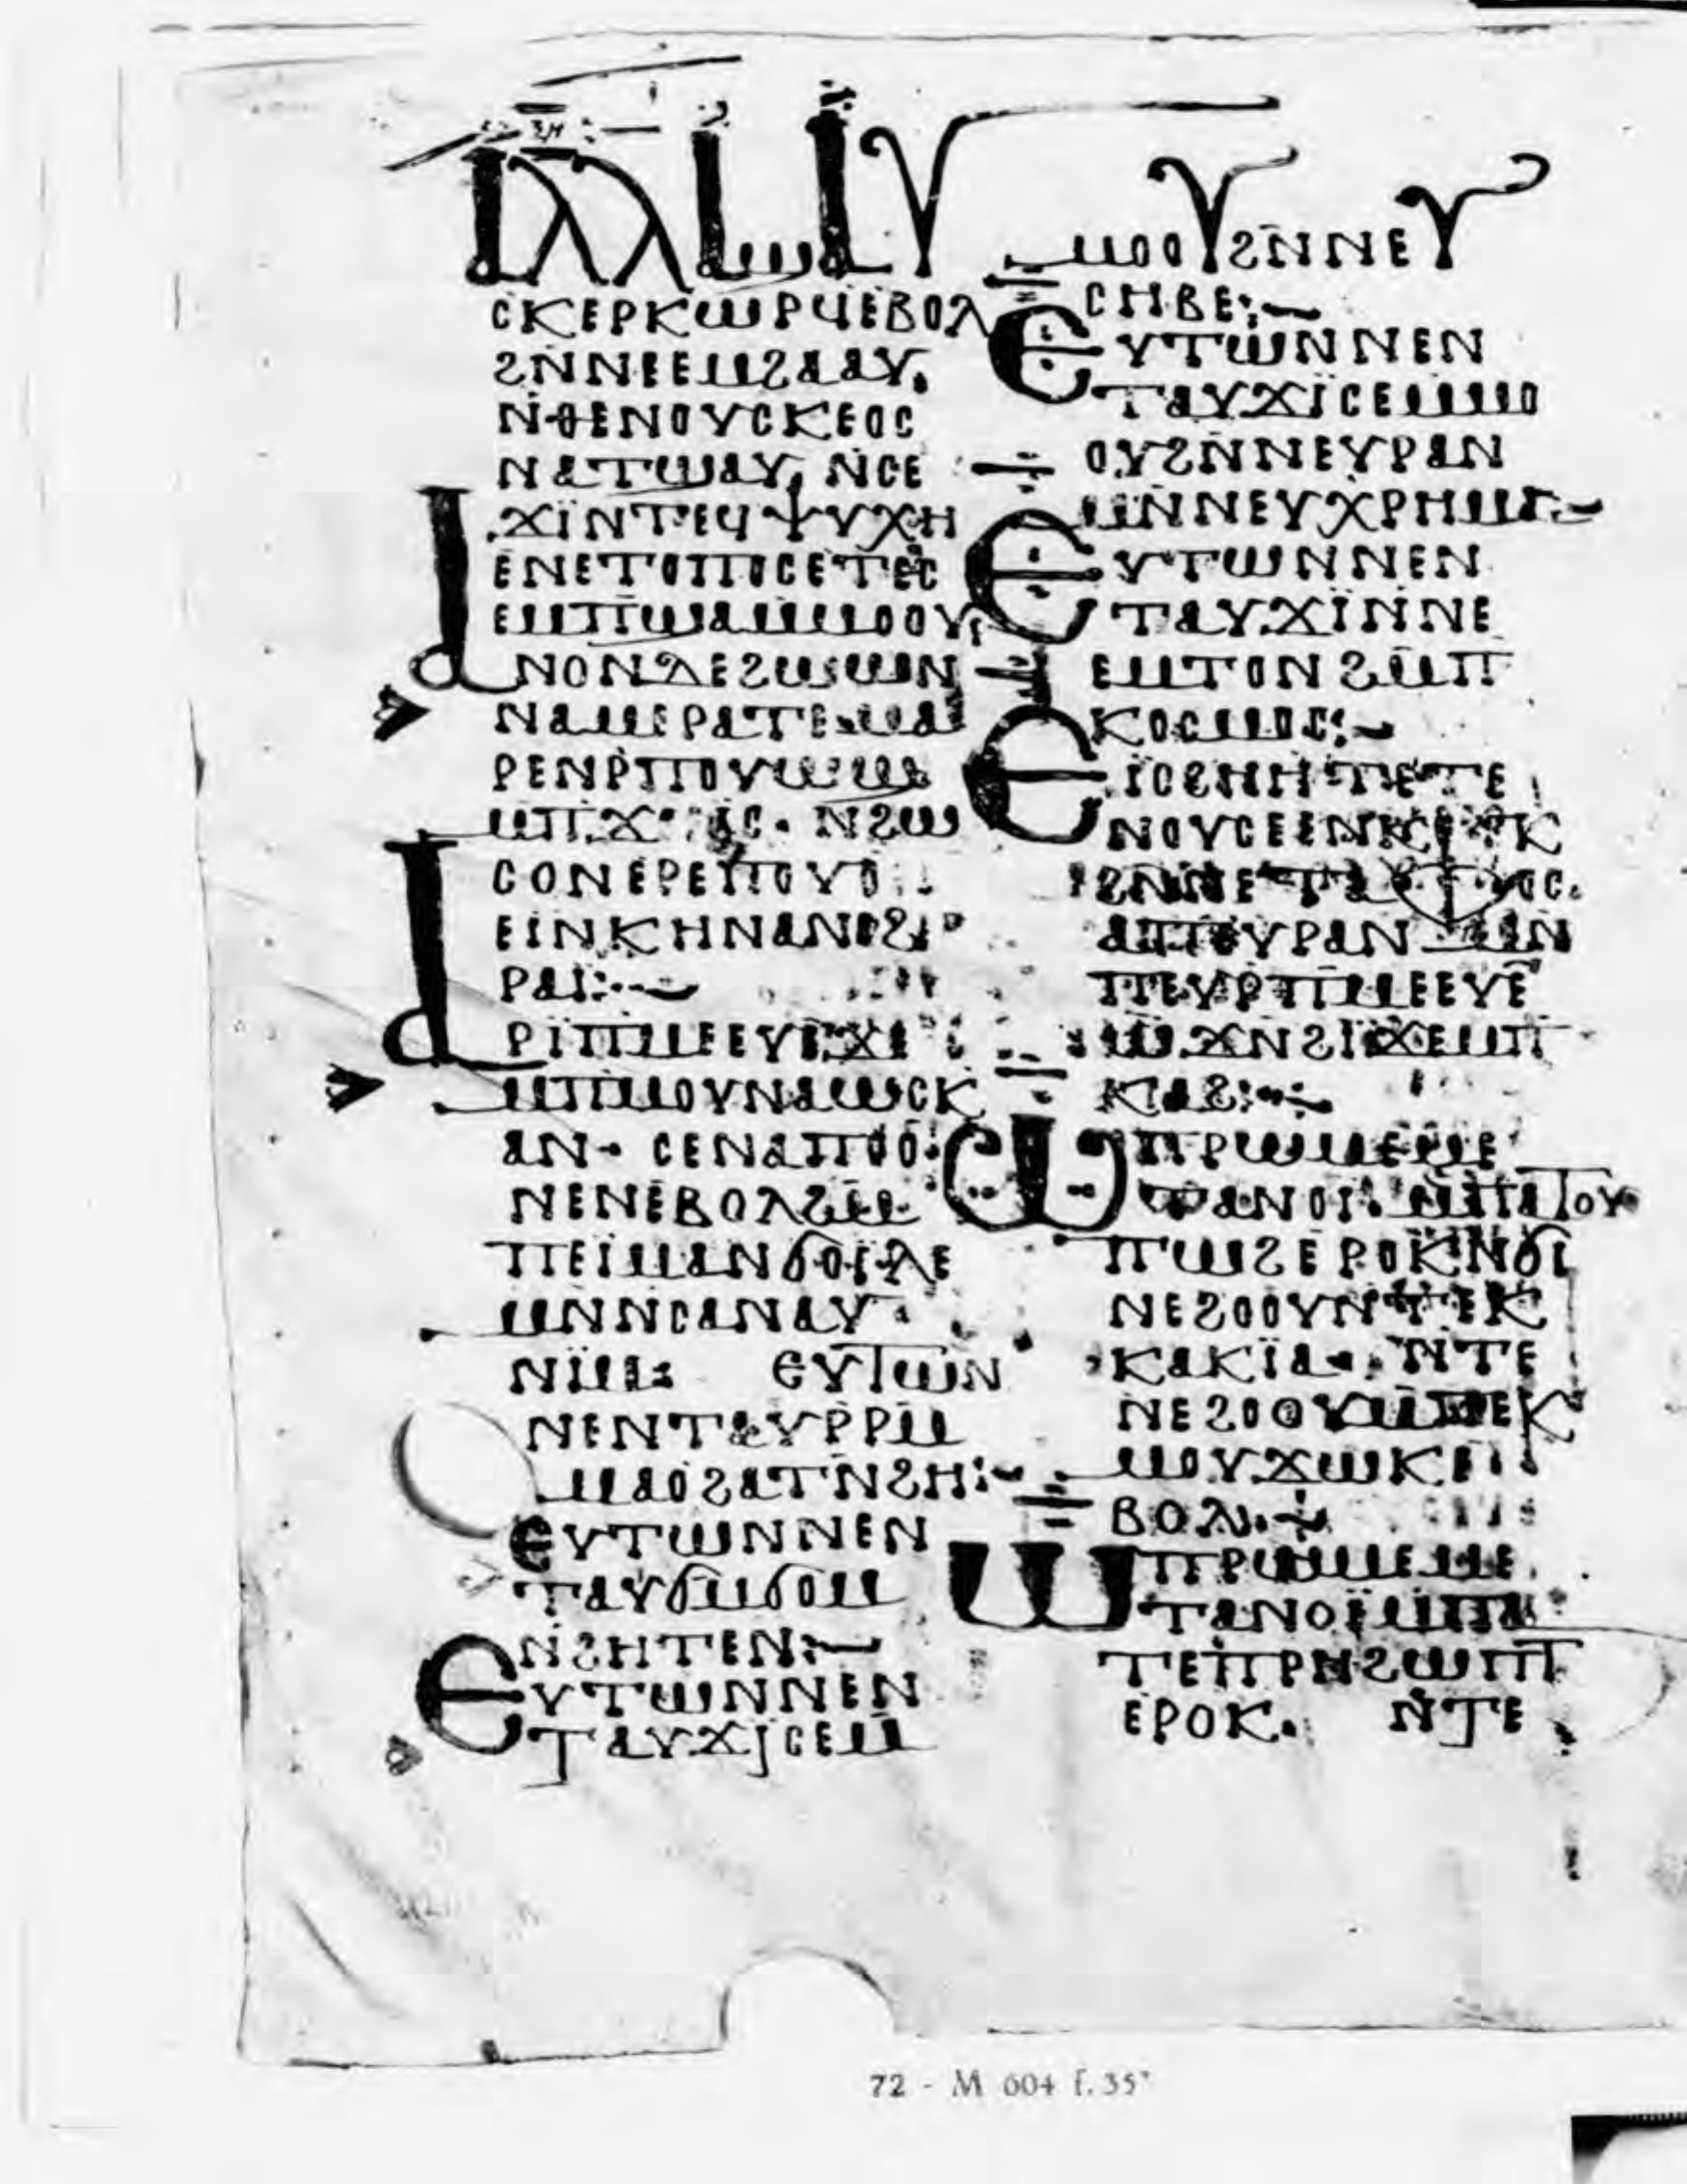 ⲥⲕⲉⲣⲕⲱⲣϥⲉⲃⲟⲗ
ϩⲛⲛⲉⲉⲙϩⲁⲁⲩ.
ⲛⲑⲉⲛⲟⲩⲥⲕⲉⲟⲥ
ⲛⲁⲧϣⲁⲩ, ⲛⲥⲉ
ϫⲓⲛⲧⲉϥⲯⲩⲭⲏ
ⲉⲛⲉⲧⲟⲡⲟⲥⲉⲧⲉⲥ
ⲉⲙⲡϣⲁⲙⲙⲟⲟⲩ,
ⲁⲛⲟⲛⲇⲉϩⲱⲱⲛ
ⲛⲁⲙⲉⲣⲁⲧⲉ·ⲙⲁ
ⲣⲉⲛⲣⲡⲟⲩⲱϣ
ⲥⲟⲛⲉⲣⲉⲡⲟⲩⲟ
ⲉⲓⲛⲕⲏⲛⲁⲛⲉϩⲣ
ⲣⲁⲓ:~
ⲁⲣⲓⲡⲙⲉⲉⲩⲉϫⲉ
ⲙⲡⲙⲟⲩⲛⲁⲱⲥⲕ
ⲁⲛ· ⲥⲉⲛⲁⲡⲟⲟ
ⲛⲉⲛⲉⲃⲟⲗϩⲙ
ⲡⲉⲓⲙⲁⲛϭⲟⲓⲗⲉ
ⲙⲛⲛⲥⲁⲛⲁⲩ
ⲛⲓⲙ: ⲉⲩⲧⲱⲛ
ⲛⲉⲛⲧⲁⲩⲣⲣⲙ
ⲙⲁⲟϩⲁⲧⲛϩⲏ:~
ⲉⲩⲧⲱⲛⲛⲉⲛ
ⲧⲁⲩϭⲙϭⲟⲙ
ⲛϩⲏⲧⲉⲛ:~
ⲉⲩⲧⲱⲛⲛⲉⲛ
ⲧⲁⲩϫⲓⲥⲉⲙ
ⲙⲟⲟⲩϩⲛⲛⲉⲩ
ⲥⲏⲃⲉ:~
ⲉⲩⲧⲱⲛⲛⲉⲛ
ⲧⲁⲩϫⲓⲥⲉⲙⲙⲟ
ⲟⲩϩⲛⲛⲉⲩⲣⲁⲛ
ⲙⲛⲛⲉⲩⲭⲣⲏⲙⲁ:~
ⲉⲩⲧⲱⲛⲛⲉⲛ
ⲧⲁⲩϫⲓⲛⲛⲉ
ⲉⲙⲧⲟⲛϩⲙⲡ
ⲕⲟⲥⲙⲟⲥ:~
ⲉⲓⲥϩⲏⲏⲧⲉⲧⲉ
ⲁⲡⲉⲩⲣⲁⲛ ⲙⲛ
ⲡⲉⲩⲣⲡⲙⲉⲉⲩⲉ
ⲱϫⲛϩⲓϫⲉⲙⲡ
ⲕⲁϩ:~
ⲱⲡⲣⲱⲙⲉⲙⲉ
ⲧⲁⲛⲟⲓ. ⲙⲡⲁⲧⲟⲩ
ⲡⲱϩⲉⲣⲟⲕⲛϭⲓ
ⲛⲉϩⲟⲟⲩⲛⲧⲉⲕ
ⲕⲁⲕⲓⲁ. ⲛⲧⲉ
ⲛⲉϩⲟⲟⲩⲙⲡⲉⲕ
ⲙⲟⲩϫⲱⲕⲉ
ⲃⲟⲗ.
ⲱⲡⲣⲱⲙⲉⲙⲉ
ⲧⲁⲛⲟⲓⲙⲡⲁ
ⲧⲉⲡⲣⲏϩⲱⲧⲡ
ⲉⲣⲟⲕ. ⲛⲧⲉ
72 - M 604 f. 35ᵛ